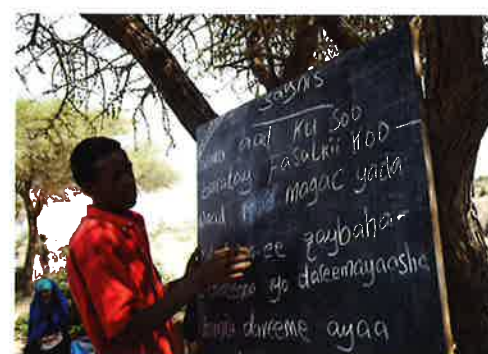 Saynis
aad ku soo
baratay Fasalkii KOD-
magac yada
ee qaybaha-
yo dareemayaasha
dareeme ayaa